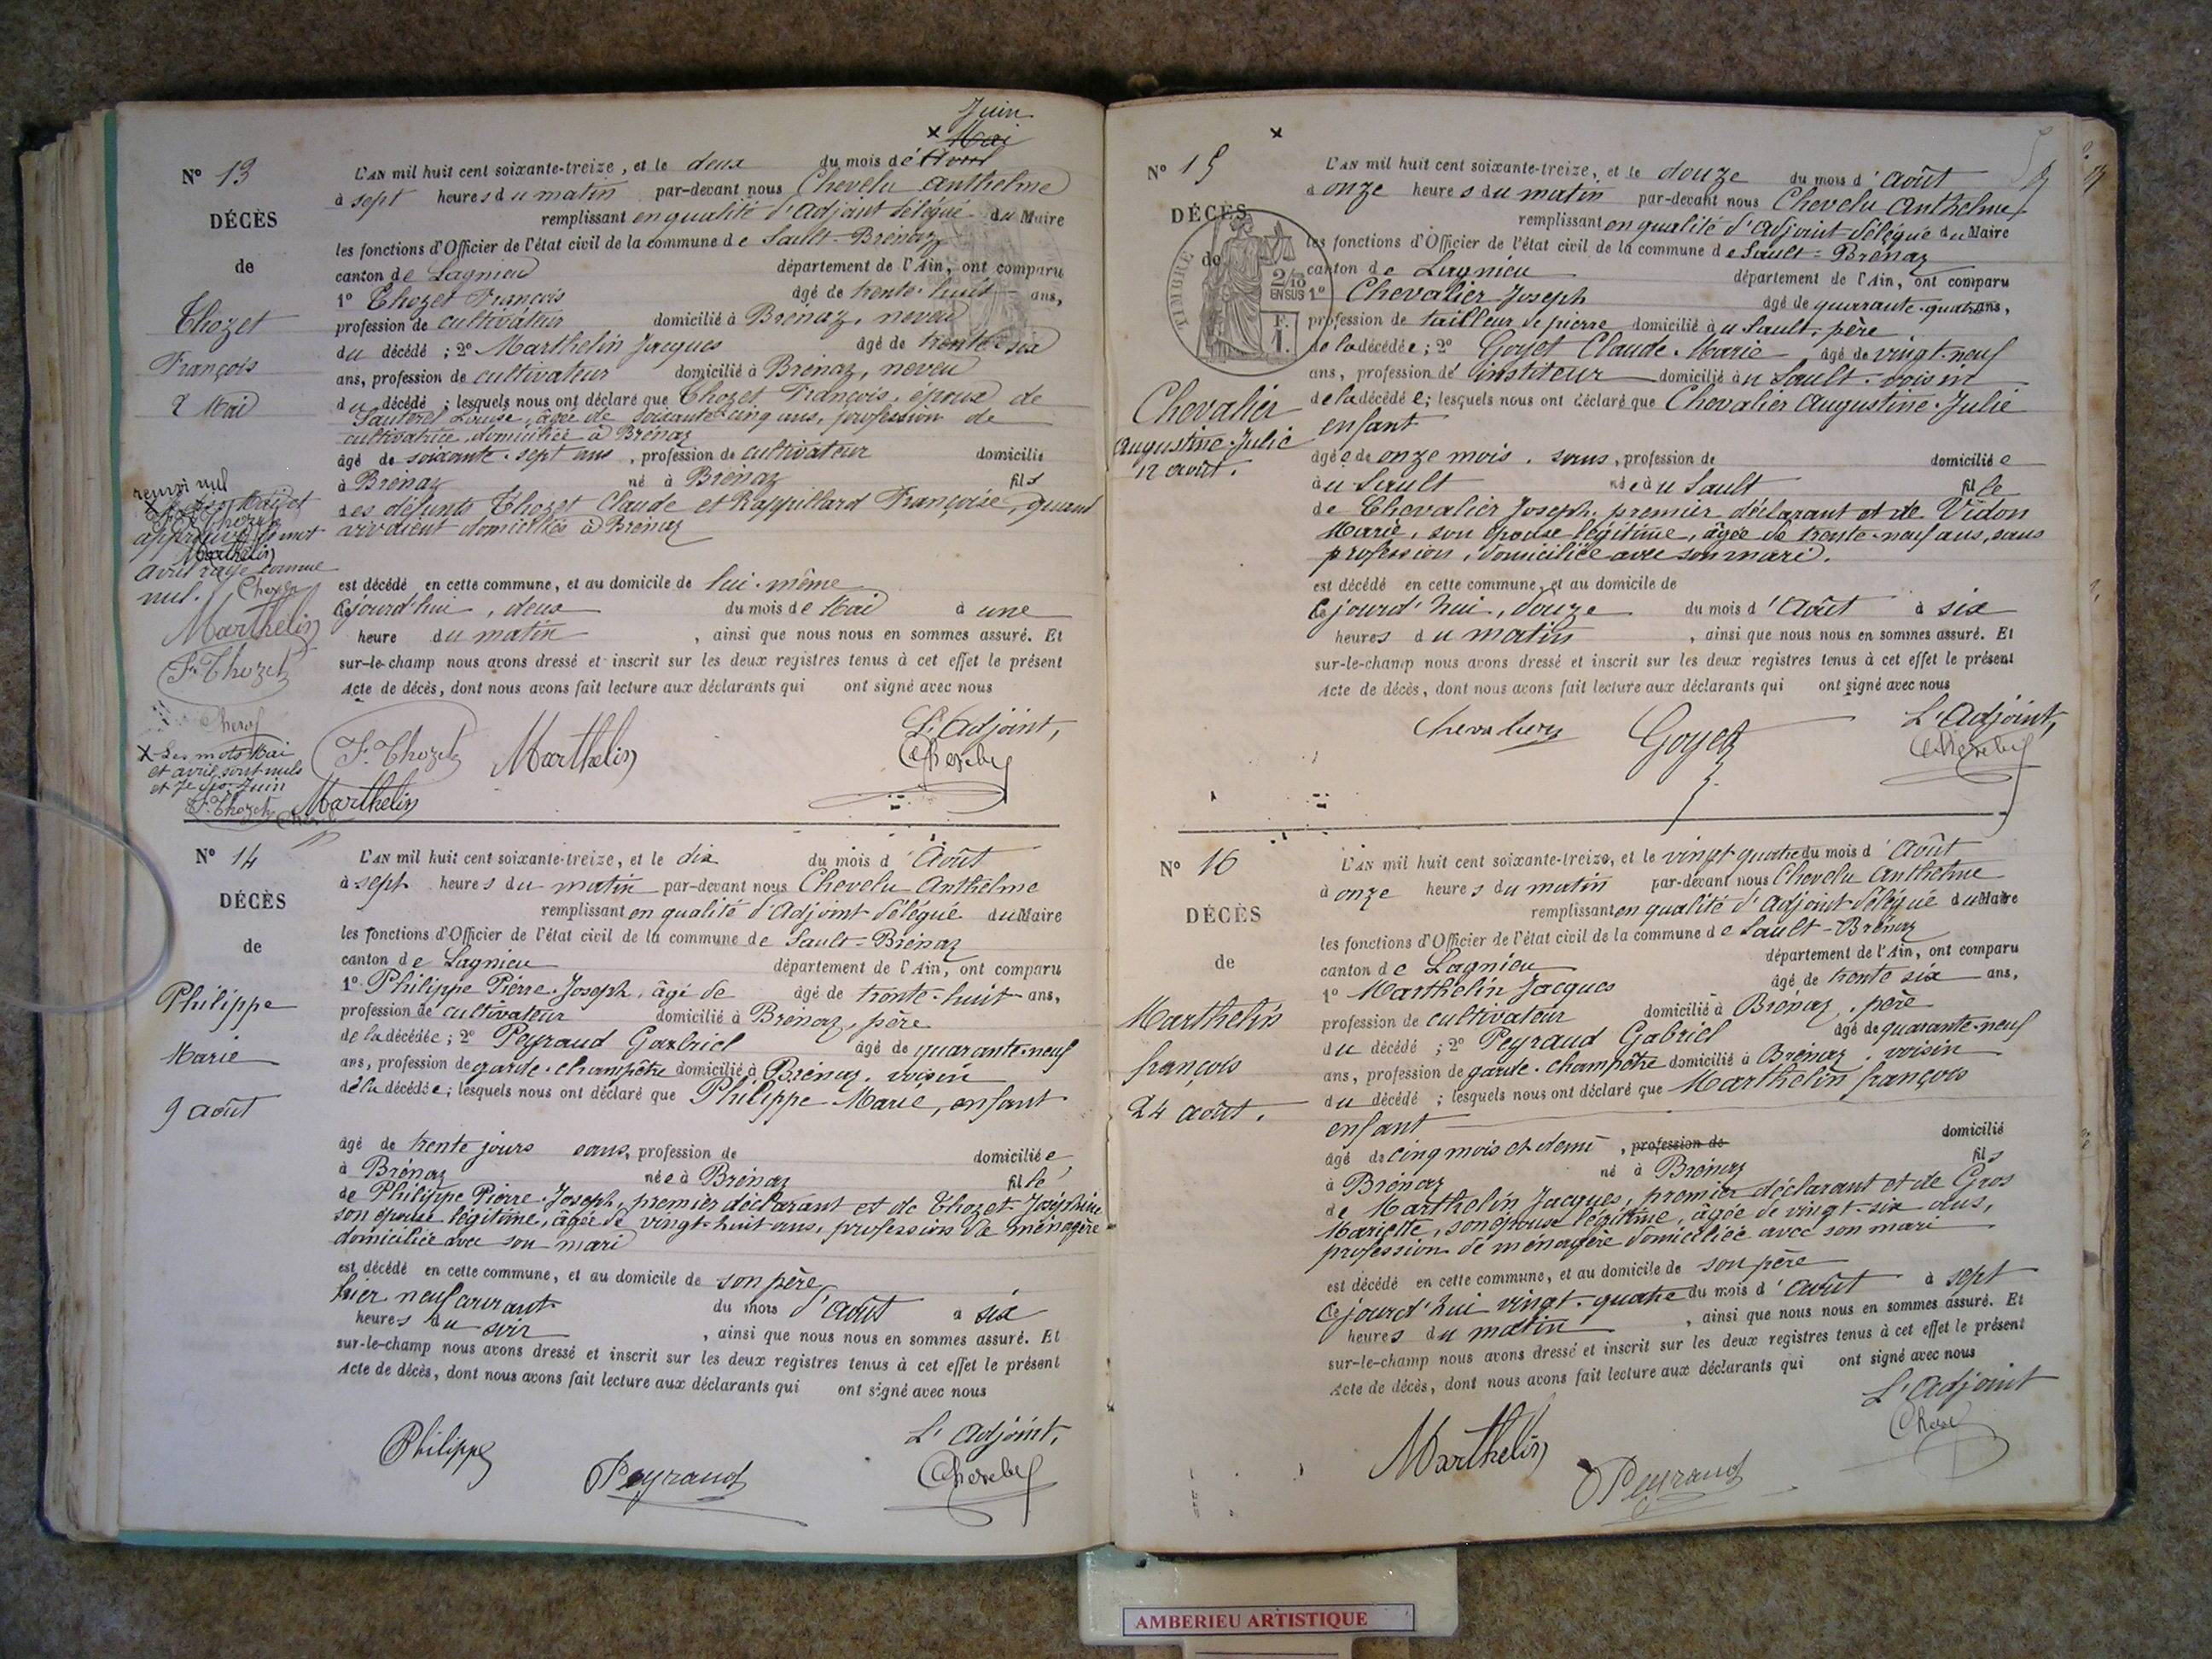 Juin
× Mai
N° 13
L'AN mil huit cent soixante-treize, et le deux du mois d'Avril
à sept heures du matin par-devant nous Chevelu Anthelme
DÉCÈS
remplissant en qualité d'Adjoint délégué du Maire
les fonctions d'Officier de l'état civil de la commune de Sault-Brénaz
de
canton de Lagnieu département de l'Ain, ont comparu
1° Thozet François âgé de trente-huit ans,
Thozet
profession de cultivateur domicilié à Brénaz, neveu
du décédé ; 2° Marthelin Jacques âgé de trente-six
François
ans, profession de cultivateur domicilié à Brénaz, neveu
2 Mai
du décédé ; lesquels nous ont déclaré que Thozet François, époux de
Louise, âgée de soixante-cinq ans, profession de
cultivatrice domiciliée à Brénaz
âgé de soixante-sept ans, profession de cultivateur domicilié
à Brénaz né à Brénaz fils
des défunts Thozet Claude et Rappillard Françoise, quand
vivaient domiciliés à Brénaz
renvoi nul
approuvé le mot
Marthelin
avril rayé comme
nul.
Marthelin
F. Thozet
est décédé en cette commune, et au domicile de lui-même
Cejourd'hui, deux du mois de Mai à une
heure du matin , ainsi que nous nous en sommes assuré. Et
sur-le-champ nous avons dressé et inscrit sur les deux registres tenus à cet effet le présent
Acte de décès, dont nous avons fait lecture aux déclarants qui ont signé avec nous
L'Adjoint,
F. Thozet Marthelin Chevelu
× Les mots Mai
et avril sont nuls
F. Thozet Marthelin
N° 14
L'AN mil huit cent soixante-treize, et le dix du mois d'Août
à sept heures du matin par-devant nous Chevelu Anthelme
DÉCÈS
remplissant en qualité d'Adjoint délégué du Maire
les fonctions d'Officier de l'état civil de la commune de Sault-Brénaz
de
canton de Lagnieu département de l'Ain, ont comparu
1° Philippe Pierre-Joseph, âgé de âgé de trente-huit ans,
Philippe
profession de cultivateur domicilié à Brénaz, père
de la décédée ; 2° Peyraud Gabriel âgé de quarante-neuf
Marie
ans, profession de garde-champêtre domicilié à Brénaz, voisin
de la décédée ; lesquels nous ont déclaré que Philippe Marie, enfant
9 août
âgé de trente jours sans, profession de domiciliée
à Brénaz née à Brénaz fille
de Philippe Pierre-Joseph, premier déclarant et de Thozet Joséphine
son épouse légitime, âgée de vingt-huit ans, profession de ménagère
domiciliée avec son mari
est décédé en cette commune, et au domicile de son père
hier neuf courant du mois d'août à six
heures du soir , ainsi que nous nous en sommes assuré. Et
sur-le-champ nous avons dressé et inscrit sur les deux registres tenus à cet effet le présent
Acte de décès, dont nous avons fait lecture aux déclarants qui ont signé avec nous
L'Adjoint,
Philippe Peyraud Chevelu
×
N° 15
L'AN mil huit cent soixante-treize, et le douze du mois d'Août
à onze heures du matin par-devant nous Chevelu Anthelme
DÉCÈS
remplissant en qualité d'Adjoint-délégué du Maire
les fonctions d'Officier de l'état civil de la commune de Sault-Brénaz
de
TIMBRE
2/10
EN SUS
F.
1.
canton de Lagnieu département de l'Ain, ont comparu
1° Chevalier Joseph âgé de quarante-quatre ans,
profession de tailleur de pierre domicilié au Sault, père
de la décédée ; 2° Goyet Claude-Marie âgé de vingt-neuf
ans, profession d'instituteur domicilié au Sault, voisin
Chevalier
de la décédée ; lesquels nous ont déclaré que Chevalier Augustine-Julie
enfant
Augustine-Julie
12 août.
âgée de onze mois, sans, profession de domiciliée
au Sault née au Sault fille
de Chevalier Joseph, premier déclarant et de Vidon
Marie, son épouse légitime, âgée de trente-neuf ans, sans
profession, domiciliée avec son mari.
est décédé en cette commune, et au domicile de
Cejourd'hui, douze du mois d'Août à six
heures du matin , ainsi que nous nous en sommes assuré. Et
sur-le-champ nous avons dressé et inscrit sur les deux registres tenus à cet effet le présent
Acte de décès, dont nous avons fait lecture aux déclarants qui ont signé avec nous
L'Adjoint,
Chevalier Goyet Chevelu
N° 16
L'AN mil huit cent soixante-treize, et le vingt-quatre du mois d'Août
à onze heures du matin par-devant nous Chevelu Anthelme
DÉCÈS
remplissant en qualité d'Adjoint-délégué du Maire
les fonctions d'Officier de l'état civil de la commune de Sault-Brénaz
de
canton de Lagnieu département de l'Ain, ont comparu
1° Marthelin Jacques âgé de trente six ans,
Marthelin
profession de cultivateur domicilié à Brénaz, père
du décédé ; 2° Peyraud Gabriel âgé de quarante-neuf
françois
ans, profession de garde-champêtre domicilié à Brénaz, voisin
du décédé ; lesquels nous ont déclaré que Marthelin françois
24 août.
enfant
âgé de cinq mois et demi , profession de domicilié
à Brénaz né à Brénaz fils
de Marthelin Jacques, premier déclarant et de Gros
Mariette, son épouse légitime, âgée de vingt-six ans,
profession de ménagère domiciliée avec son mari
est décédé en cette commune, et au domicile de son père
Cejourd'hui vingt-quatre du mois d'août à sept
heures du matin , ainsi que nous nous en sommes assuré. Et
sur-le-champ nous avons dressé et inscrit sur les deux registres tenus à cet effet le présent
Acte de décès, dont nous avons fait lecture aux déclarants qui ont signé avec nous
L'Adjoint
Marthelin Peyraud
AMBERIEU ARTISTIQUE